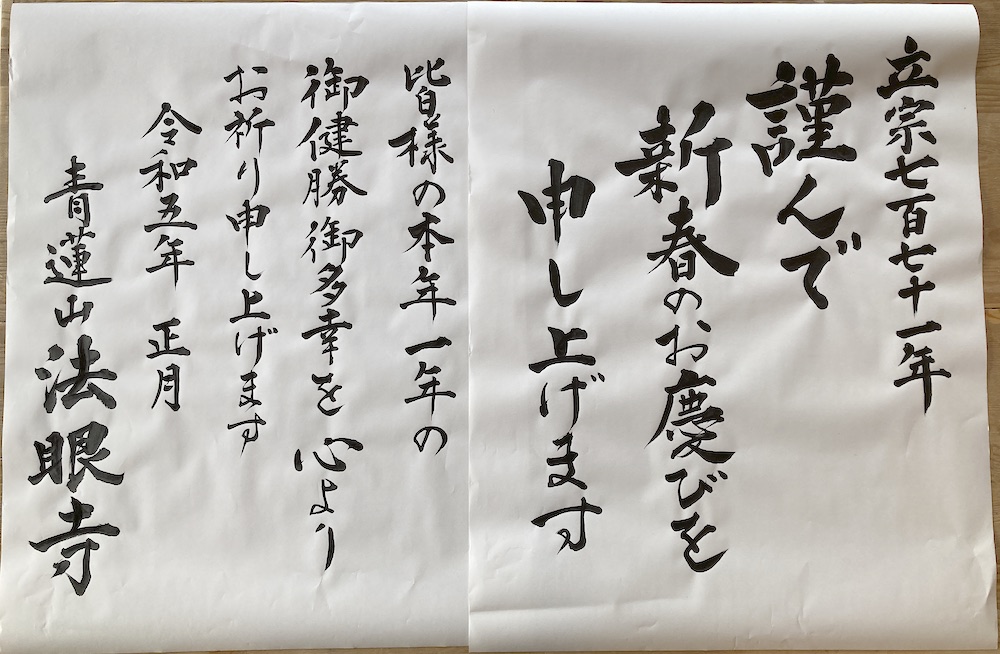 立宗七百七十一年
謹んで
新春のお慶びを
申し上げます
皆様の本年一年の
御健勝御多幸を心より
お祈り申し上げます
令和五年 正月
青蓮山法眼寺